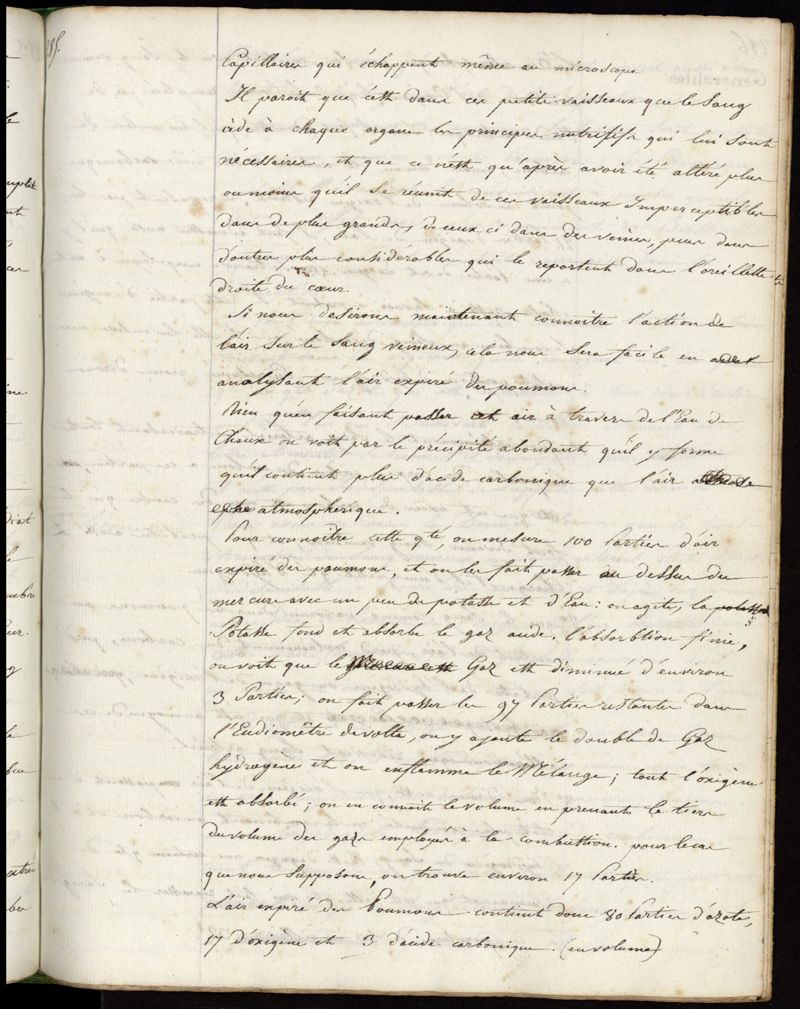 185.
Capillaires qui échappent même au microscope
Il paroit que c'est dans ces petits vaisseaux que le Sang
cède à chaque organe les principes nutritifs qui lui sont
nécessaires, et que ce n'est qu'après avoir été altéré plus
ou moins qu'il se réunit de ces vaisseaux Imperceptibles
dans de plus grands, de ceux ci dans des veines, puis dans
d'autres plus considérables qui le reportent dans l'oreillette
droite du cœur.
Si nous desirons maintenant connoitre l'action de
l'air sur le Sang veineux, cela nous sera facile en
analysant l'air expiré des poumons.
Rien qu'en faisant passer cet air à travers de l'Eau de
Chaux on voit par le précipité abondant qu'il y forme
qu'il contient plus d'acide carbonique que l'air
atmospherique.
Pour connoitre cette qté, on mesure 100 Parties d'air
expiré des poumons, et on les fait passer au dessus du
mercure avec un peu de potasse et d'Eau : on agite, la potasse
Potasse fond et absorbe le gaz acide. l'absorbtion finie,
on voit que le Gaz est diminué d'environ
3 Parties ; on fait passer les 97 Parties restantes dans
l'Eudiomêtre de volta, on y ajoute le double de Gaz
hydrogène et on enflamme le Mélange ; tout l'oxigène
est absorbé ; on en connoit le volume en prenant le tiers
du volume des gazs employés à la combustion. pour le cas
que nous Supposons, on trouve environ 17 Parties.
L'air expiré des Poumons contient donc 80 Parties d'azote,
17 d'oxigène et 3 d'acide carbonique. (en volume)